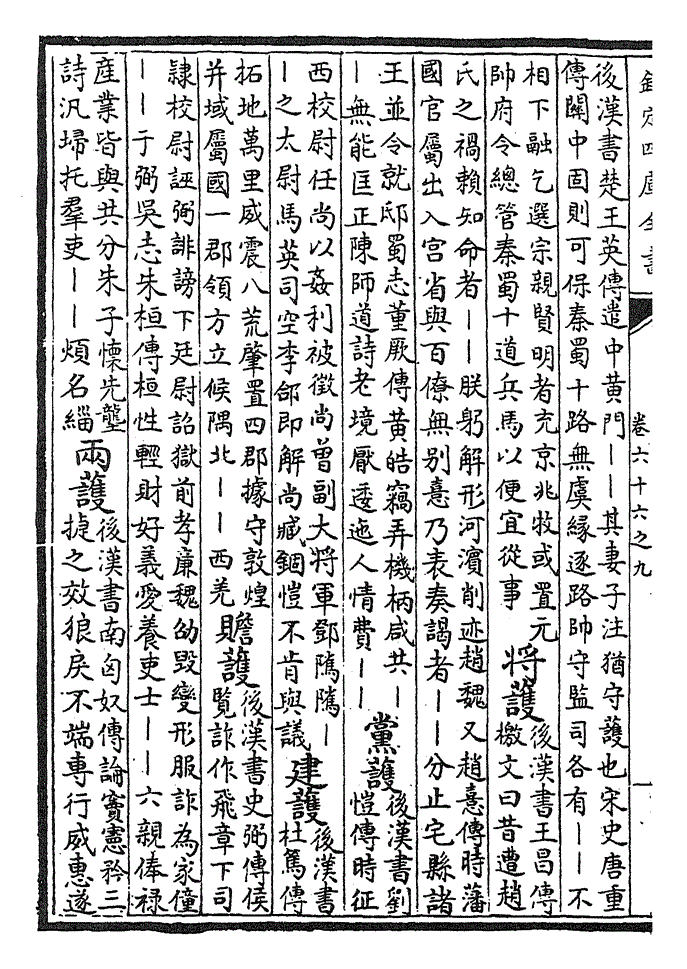 欽定四庫全書
卷六十六之九
後漢書楚王英傳遣中黃門——其妻子注猶守䕶也宋史唐重
傳關中固則可保秦蜀十路無虞緣逐路帥守監司各有——不
相下融乞選宗親賢明者充京兆牧或置元
帥府令總管秦蜀十道兵馬以便宜從事
將䕶
後漢書王昌傳
檄文曰昔遭趙
氏之禍賴知命者——朕躬解形河濱削迹趙魏又趙憙傳時藩
國官屬出入宮省與百僚無别憙乃表奏謁者——分止宅縣諸
王並令就邸蜀志董厥傳黃皓竊弄機柄咸共—
—無能匡正陳師道詩老境厭逶迤人情費——
黨䕶
後漢書劉
愷傳時征
西校尉任尚以姦利被徵尚曾副大將軍鄧隲隲—
—之太尉馬英司空李郃即解尚臧錮愷不肯與議
建䕶
後漢書
杜篤傳
拓地萬里威震八荒肇置四郡據守敦煌
并域屬國一郡領方立候隅北——西羌
贍䕶
後漢書史弼傳侯
覧詐作飛章下司
隷校尉誣弼誹謗下廷尉詔獄前孝廉魏劭毀變形服詐為家僮
——于弼吳志朱桓傳桓性輕財好義愛養吏士——六親俸禄
産業皆與共分朱子懷先壟
詩汎埽托羣吏——煩名緇
兩䕶
後漢書南匈奴傳論竇憲矜三
捷之效狼戾不端專行威惠遂